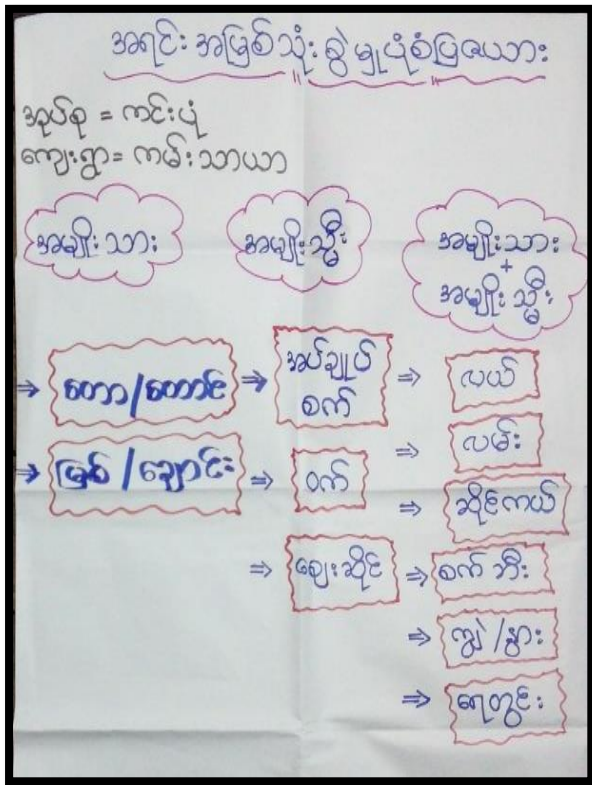 အရင်းအမြစ်သုံးစွဲမှုပုံစံပြဇယား
အုပ်စု = ကင်းပုံ
ကျေးရွာ = ကမ်းသာယာ
အမျိုးသား
အမျိုးသ္မီး
အမျိုးသား
+
အမျိုးသ္မီး
⇒ တော/တောင်
⇒ မြစ်/ချောင်း
⇒ အပ်ချုပ်
စက်
⇒ ဝက်
⇒ ဈေးဆိုင်
⇒ လယ်
⇒ လမ်း
⇒ ဆိုင်ကယ်
⇒ စက်ဘီး
⇒ ကျွဲ/နွား
⇒ ရေတွင်း